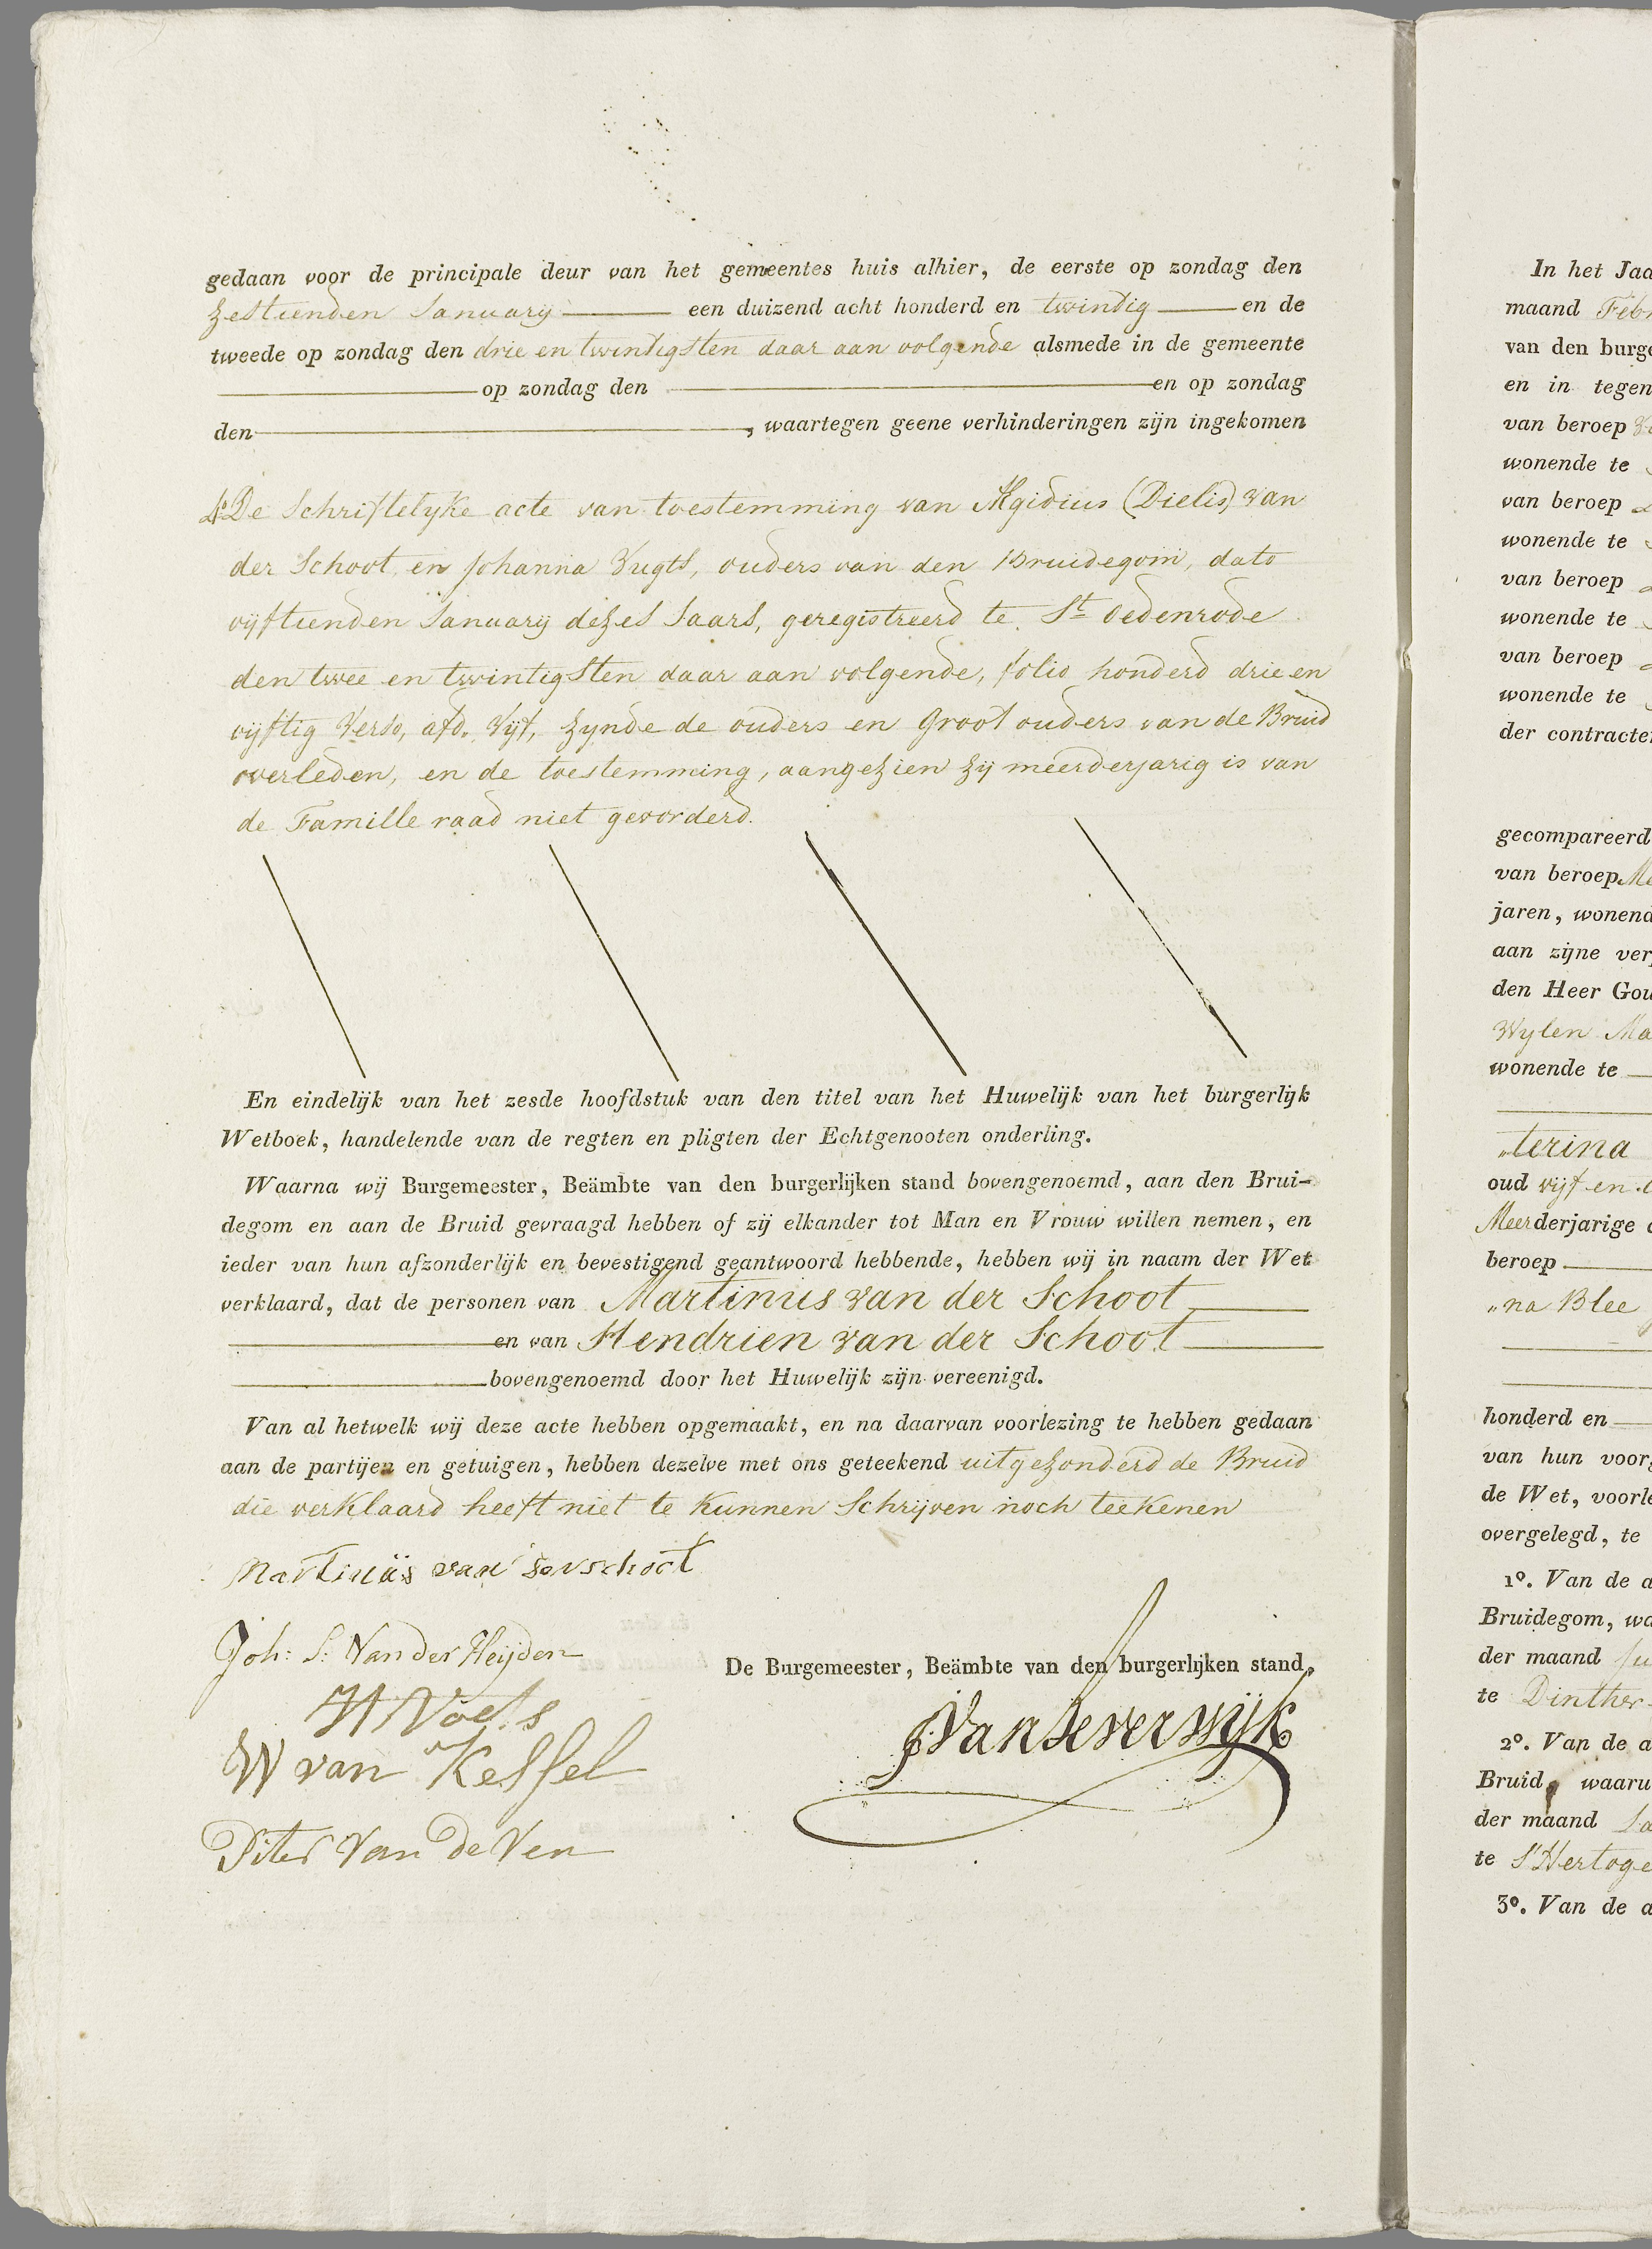 gedaan voor de principale deur van het gemeentes huis alhier, de eerste op zondag den
zestienden January een duizend acht honderd en twindig en de
tweede op zondag den drie en twindigsten daar aan volgende alsmede in de gemeente
op zondag den en op zondag
den , waartegen geene verhinderingen zijn ingekomen
4° De Schriftelyke acte van toestemming van Ægidius (Dielis) van
der Schoot en Johanna Vugts, ouders van den Bruidegom, dato
vijftienden January dezes Jaars, geregistreerd te St Oedenrode
den twee en twintigsten daar aan volgende, folio honderd drie en
vijftig Verso, afd. Vijf, zynde de ouders en Groot ouders van de Bruid
overleden, en de toestemming, aangezien zij meerderjarig is van
de Famille raad niet gevorderd.
En eindelijk van het zesde hoofdstuk van den titel van het Huwelijk van het burgerlijk
Wetboek, handelende van de regten en pligten der Echtgenooten onderling.
Waarna wij Burgemeester, Beämbte van den burgerlijken stand bovengenoemd, aan den Brui-
degom en aan de Bruid gevraagd hebben of zij elkander tot Man en Vrouw willen nemen, en
ieder van hun afzonderlijk en bevestigend geantwoord hebbende, hebben wij in naam der Wet
verklaard, dat de personen van Martinus van der Schoot
en van Hendrien van der Schoot
bovengenoemd door het Huwelijk zijn vereenigd.
Van al hetwelk wij deze acte hebben opgemaakt, en na daarvan voorlezing te hebben gedaan
aan de partijen en getuigen, hebben dezelve met ons geteekend uitgezonderd de Bruid
die verklaard heeft niet te kunnen Schrijven noch teekenen
Martinus van derschoot
Joh: S: Van der Heijden
De Burgemeester, Beämbte van den burgerlijken stand,
W van Kessel
Piter Van de Ven
In het Jaa
maand Feb
van den burge
en in tegen
van beroep
wonende te
van beroep
wonende te
van beroep
wonende te
van beroep
wonende te
der contracte
gecompareerd
van beroep Me
jaren, wonend
aan zijne ver
den Heer Gou
Wylen Ma
wonende te
„terina
oud vijf en
Meerderjarige
beroep
„na Blee
honderd en
van hun voor
de Wet, voorle
overgelegd, te
1°. Van de a
Bruidegom, wa
der maand Ju
te Dinther
2°. Van de a
Bruid, waaru
der maand Ja
te S'Hertoge
3°. Van de a